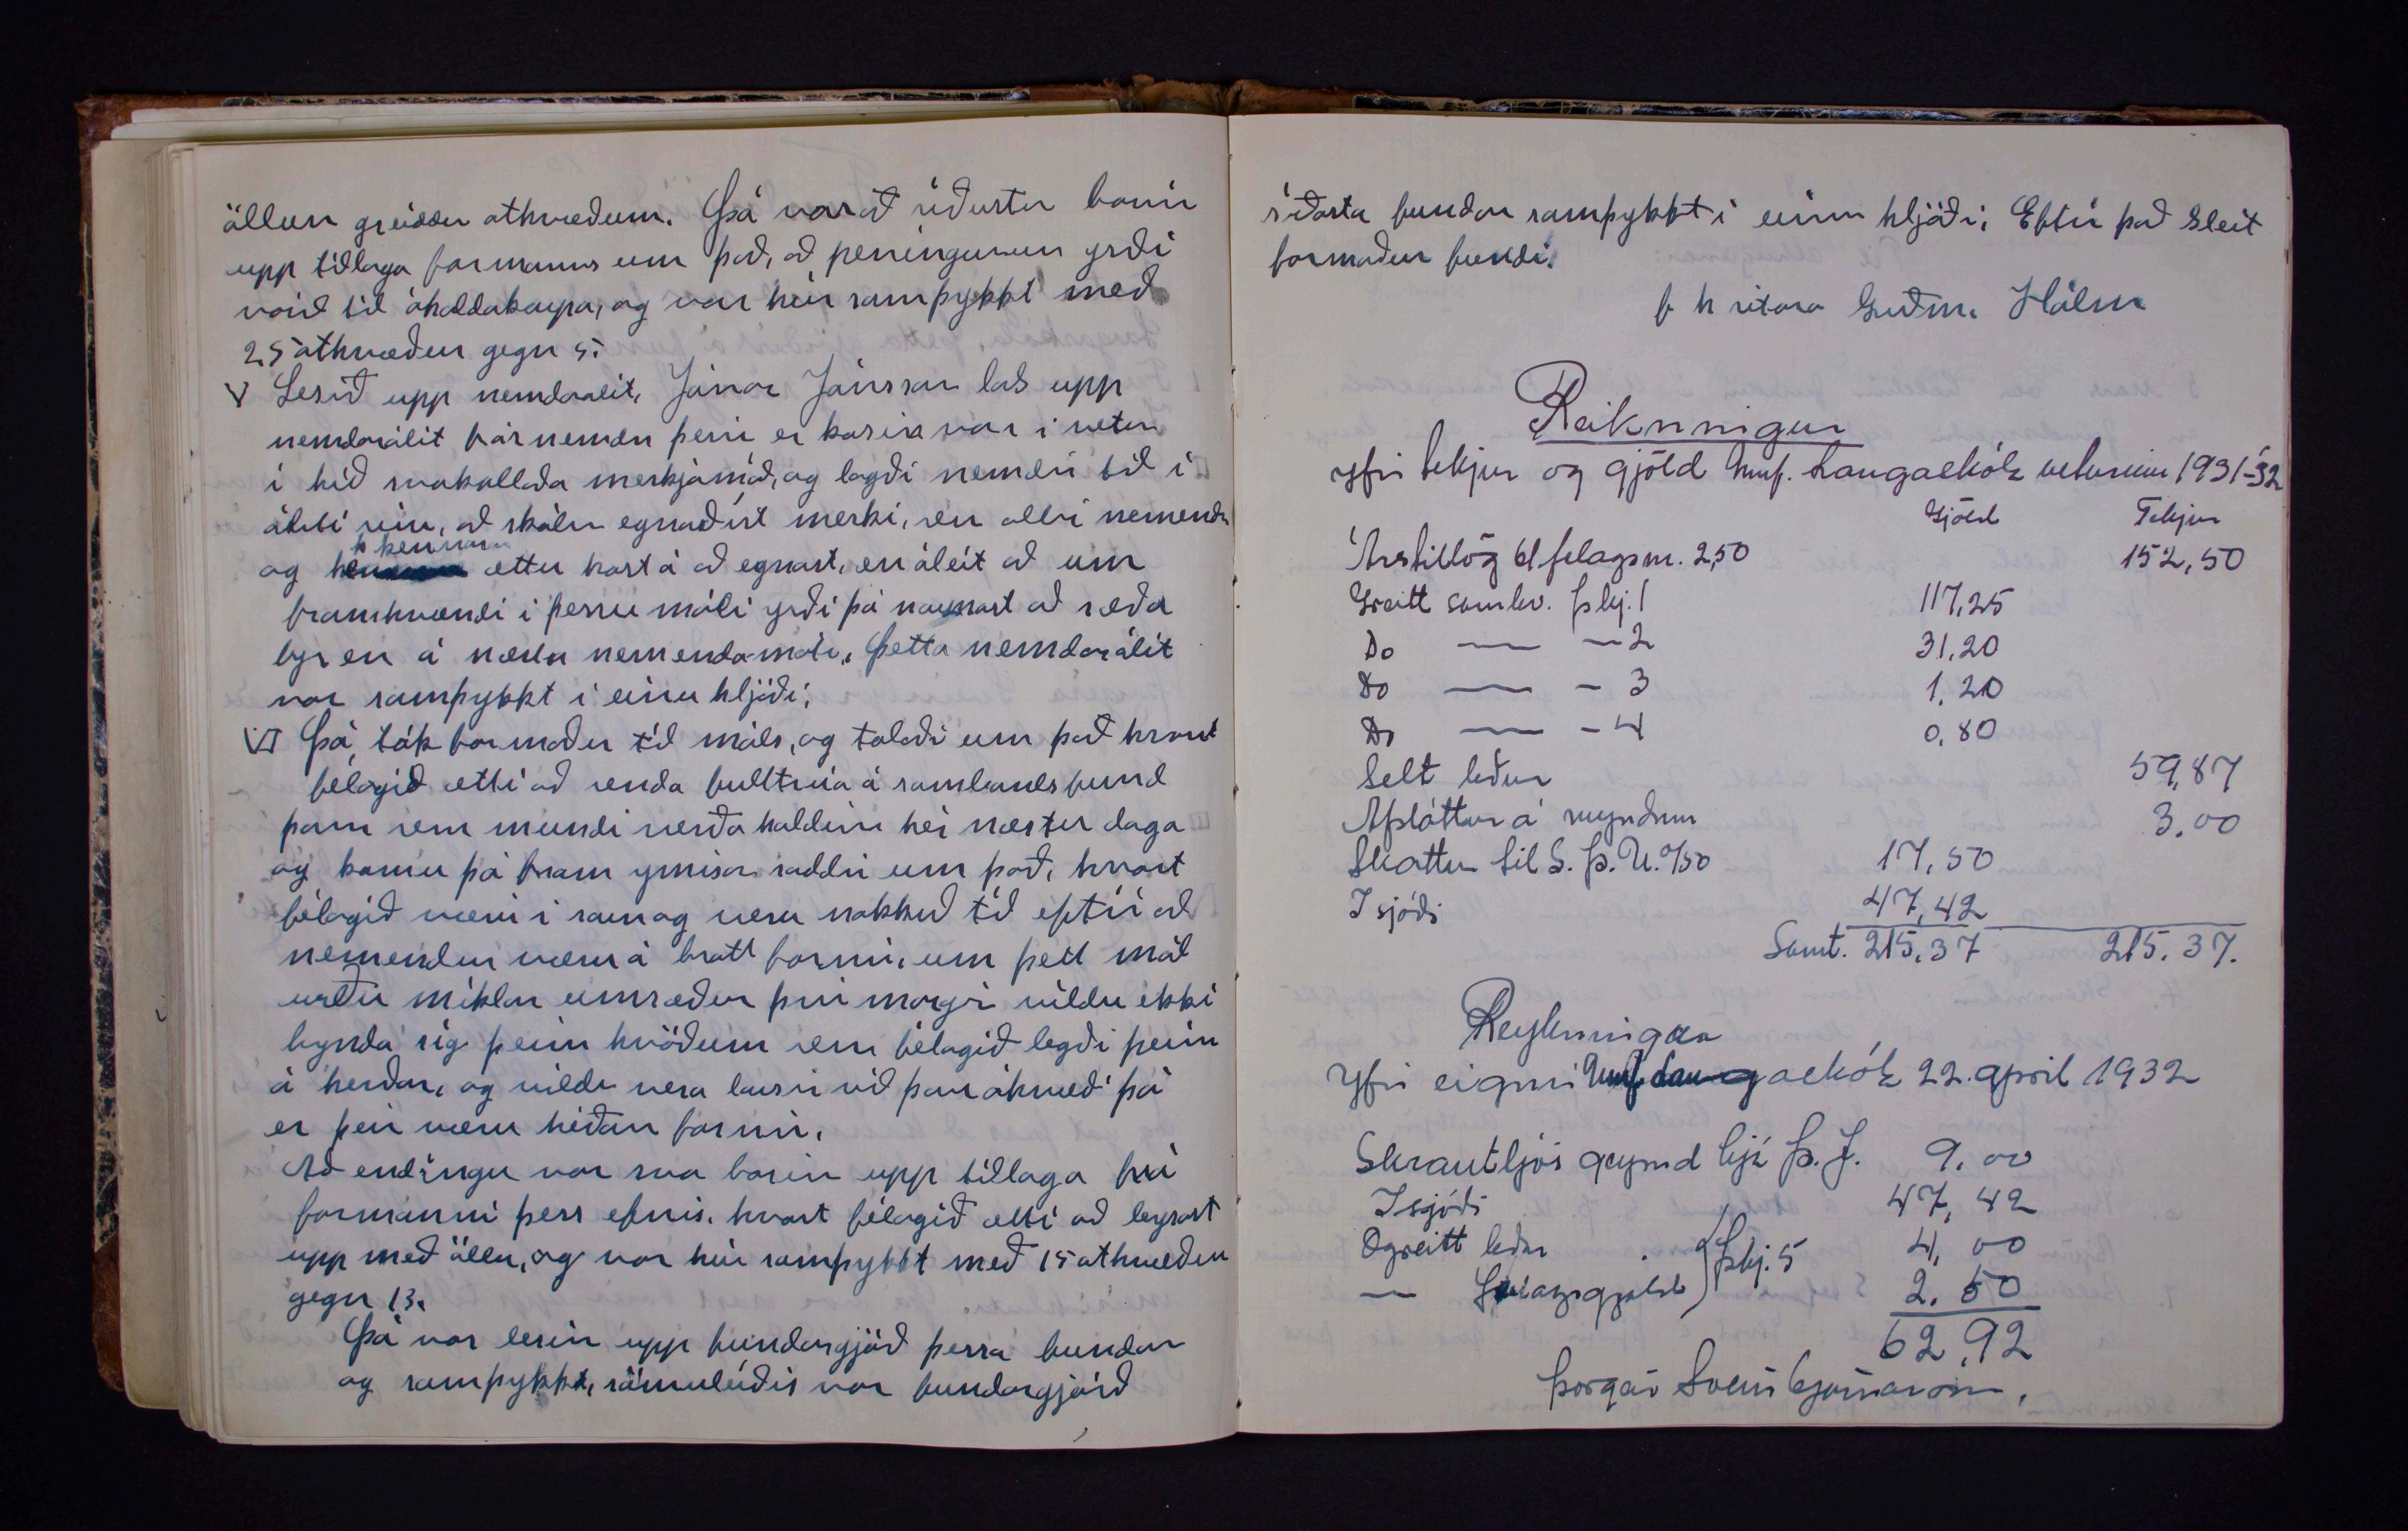 öllum greiddu athvæðum. Þá var að síðustu borin
upp tillaga formanns um það, að peningunum yrði
varið til áhaldakaupa, og var hún samþykkt með
25 athvæðum gegn 5.
V Lesið upp nemdarálit, Jónar Jónsson las upp
nemdarálit frá nemdu þeiri er kosin var i vetur
i hið svokallaða merkjamál, og lagði nemdin til i
áliti sínu, að skólin egnaðist merki, sem allir nemendur
og kennarar ættu kost á að egnast, en áleit að um
framhvændi i þessu máli yrði þá naumast að ræða
fyr en á næsta nemendamóti. Þetta nemdarálit
var samþykkt i einu hljóði;
VI Þá tók formaður til máls, og talaði um það hvort
félagið ætti að senda fulltrúa á sambandsfund
þann sem mundi verða haldinn hér næstu daga
og komu þá fram ymisar raddir um það, hvort
félagið væri i raun og veru nokkuð til eftir að
nemendur væru á bratt farnir, um þett mál
urðu miklar umræður því margir vildu ekki
bynda sig þeim kvöðum sem félagið legði þeim
á herðar, og vildu vera lausir við þau ákvæði þá
er þeir væru héðan farnir.
Að endingu var svo borin upp tillaga frá
formanni þess efnis, hvort félagið ætti að leysast
upp með öllu, og var hún samþykkt með 15 athvæðum
gegn 13.
Þá var lesin upp fundargjörð þessa fundar
og samþykkt, sömuleiðis var fundargjörð
síðasta fundar samþykkt i einu hljóði; Eftir það sleit
formaður fundi.
f h ritara Guðm. Hólm
Reiknningur
yfir tekjur og gjöld Umf. Laugaskóla veturinn 1931-32
Gjöld Tekjur
Árstillög 61 felagsm. 2,50 152,50
Greitt samkv. fskj. 1 117,25
Do — - 2 31,20
Do — - 3 1,20
Do — - 4 0,80
Selt leður 59,87
Afsláttur á myndum 3.00
Skattur til S. Þ. U. 0/50 17,50
I sjóði 47,42
Samt. 215,37 215.37.
Reykningur
Yfir eignir Umf. Laugaskóla 22. april 1932
Skrautljós geymd hjá Þ. J. 9.00
I sjóði 47,42
Ógreitt leður fskj. 5 4,00
— felagsgjald 2.50
62,92
Þorgeir Sveinbjarnarson,